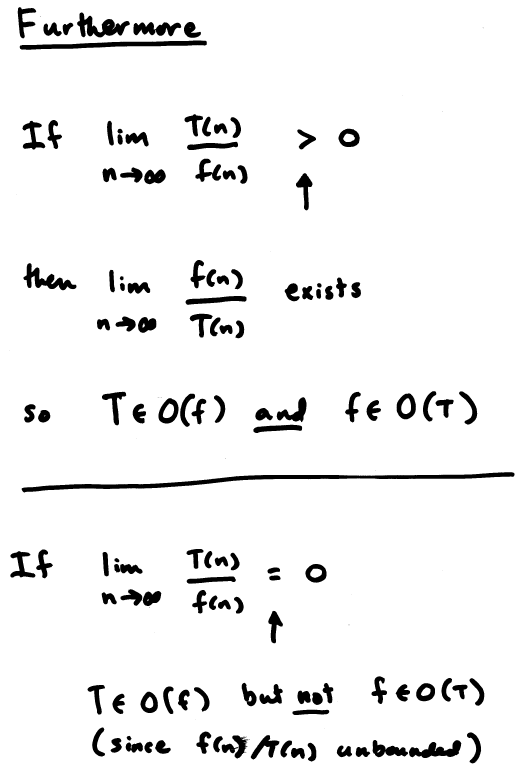 Furthermore
If lim n→∞ T(n)/f(n) > 0
↑
then lim n→∞ f(n)/T(n) exists
so T ∈ O(f) and f ∈ O(T)
If lim n→∞ T(n)/f(n) = 0
↑
T ∈ O(f) but not f ∈ O(T)
(since f(n)/T(n) unbounded)